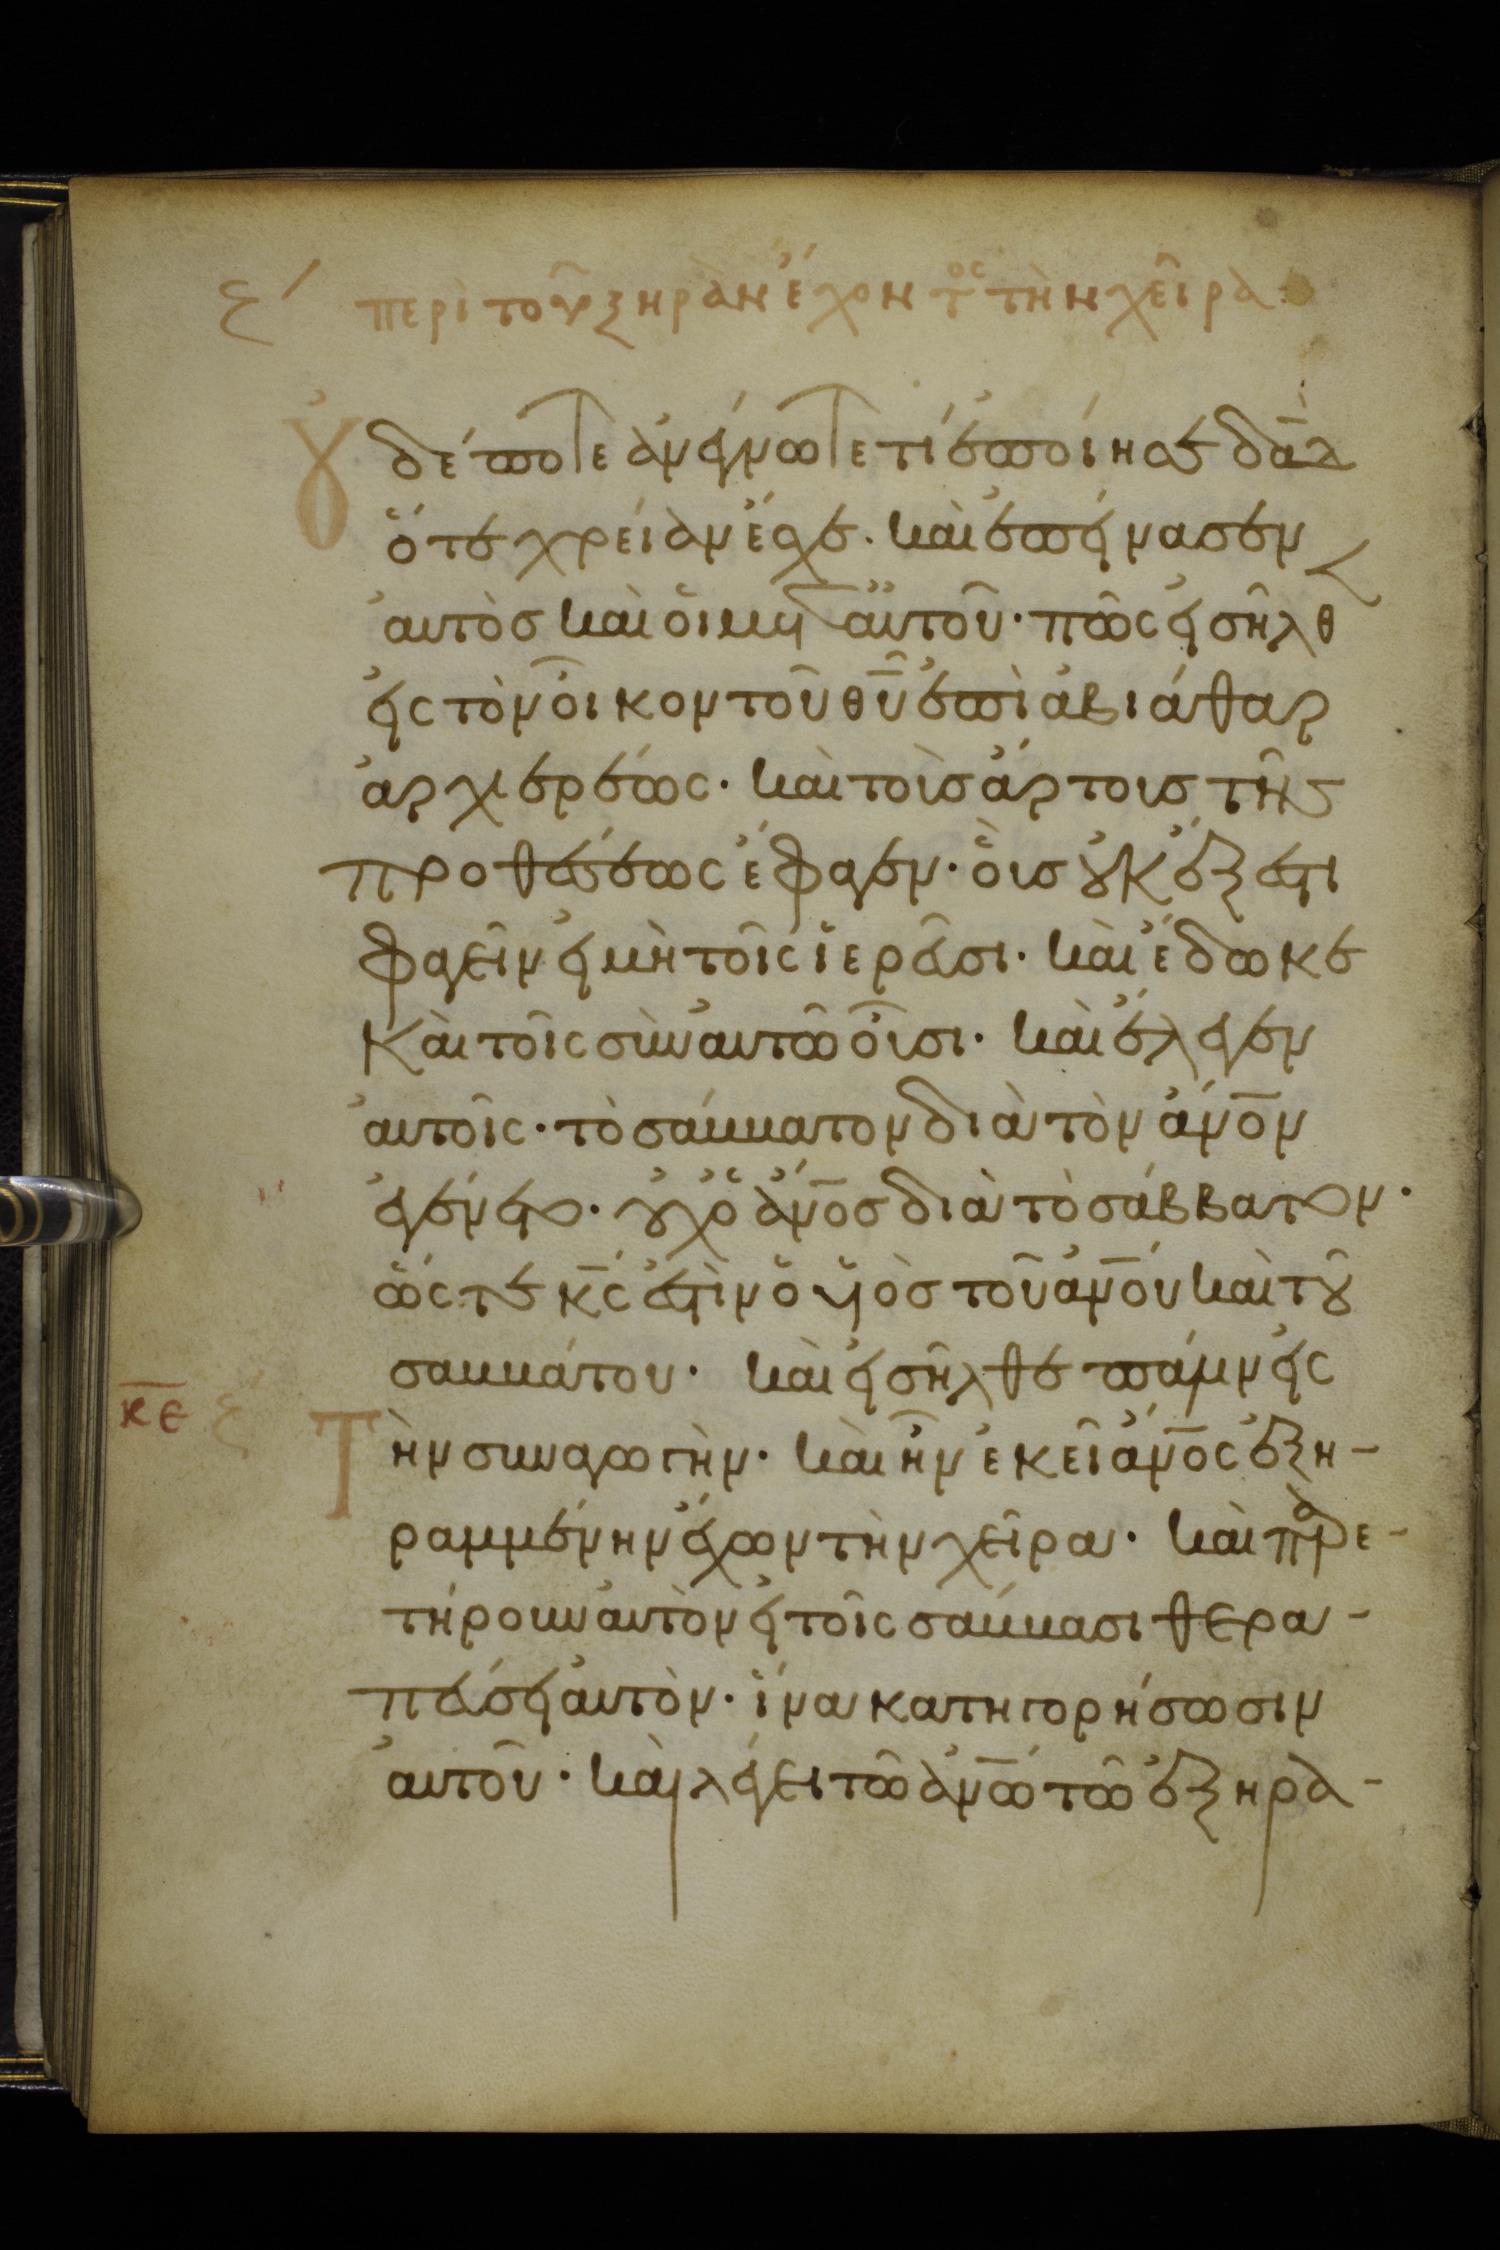 ϛ´ περὶ τοῦ ξηρὰν ἔχοντ(ος) τὴν χεῖρα
Οὐδέποτε ἀνέγνωτε τί ἐποίησε δα̅δ̅
ὅτε χρείαν ἔσχε· καὶ ἐπείνασεν
αὐτὸσ καὶ οἱ μετ' αὐτοῦ· πῶς εἰσῆλθ
εἰς τὸν οἶκον τοῦ θ̅υ̅ ἐπὶ ἀβιάθαρ
ἀρχιερέως· καὶ τοὺσ ἄρτουσ τῆς
προθέσεως ἔφαγεν· οὓσ οὐκ ἔξεστι
φαγεῖν εἰ μὴ τοῖς ἱερεῦσι· καὶ ἔδωκε
καὶ τοῖς σὺν αὐτῶ οὖσι· καὶ ἔλεγεν
αὐτοῖς· τὸ σάββατον διὰ τὸν ἄν̅ο̅ν
ἐγένετο· οὐχ' ὁ ἄν̅ο̅σ διὰ τὸ σάββατον·
ὥστε κ̅ς̅ ἐστὶν ὁ υἱὸσ τοῦ ἀν̅ο̅ύ καὶ τοῦ
σαββάτου· καὶ εἰσῆλθε πάλιν εἰς
κ̅ε̅ ϛ´ Τὴν συναγωγὴν· καὶ ἦν ἐκεῖ ἄν̅ο̅ς ἐξη-
ραμμένην ἔχων τὴν χεῖρα· καὶ παρε-
τήρουν αὐτὸν εἰ τοῖς σάββασι θερα-
πεύσει αὐτὸν· ἵνα κατηγορήσωσιν
αὐτοῦ· καὶ λέγει τῶ ἀν̅ω̅ τῶ ἐξηρα-